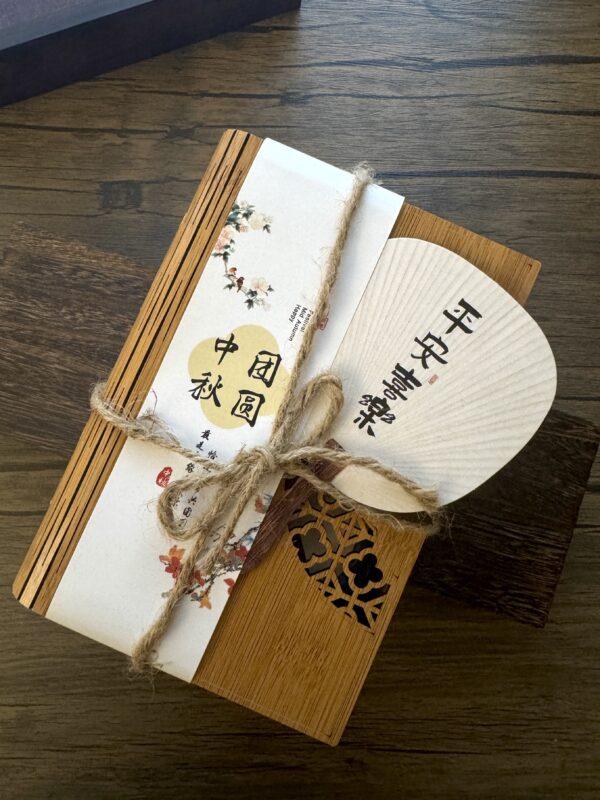 Happy
Mid Autumn
Festival
中秋
团圆
平安喜樂